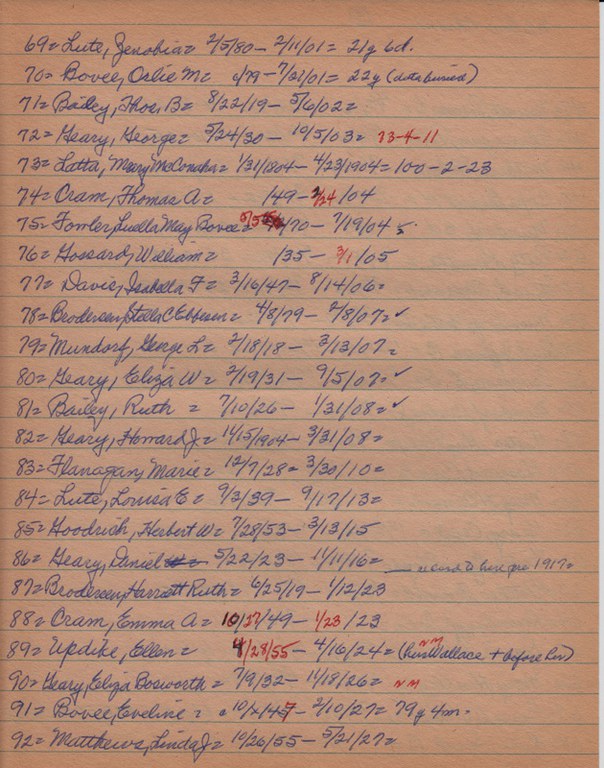 69= Lute, Zenobia= 2/5/80 - 2/11/01 = 21y 6d.
70= Bovee, Orlie M= c/79 - 7/21/01 = 22y (date buried)
71= Bailey, Thos. B= 8/22/19 - 5/6/02=
72= Geary, George= 5/24/30 - 10/5/03= 73-4-11
73= Latta, Mary McConaha= 1/31/1804 - 4/23/1904 = 100-2-23
74= Cram, Thomas A= /49 - /24/04
75= Fowler, Luella May Bovee= /70 - 7/19/04
76= Gossard, William= /35 - 3/1/05
77= Davis, Isabella F= 3/16/47 - 8/14/06=
78= Brodersen, Stella C Ebbesen= 4/8/79 - 2/8/07= ✓
79= Mundorf, George L= 2/18/18 - 3/13/07=
80= Geary, Eliza W= 2/19/31 - 9/5/07= ✓
81= Bailey, Ruth = 7/10/26 - 1/31/08= ✓
82= Geary, Howard J= 11/15/1904 - 3/31/08=
83= Flanagan, Marie= 12/7/28= 3/30/10=
84= Lute, Louisa E= 9/3/39 - 9/17/13=
85= Goodrich, Herbert W= 7/28/53 - 3/13/15
86= Geary, Daniel = 5/22/23 - 11/11/16= __ record to here pre 1917=
87= Brodersen, Harriett Ruth= 6/25/19 - 1/12/23
88= Cram, Emma A= 10/27/49 - 1/23/23
89= Updike, Ellen= 4/28/55 - 4/16/24= (hus Wallace + before her) NM
90= Geary, Eliza Bosworth = 7/9/32 - 11/18/26= NM
91= Bovee, Eveline = c 10/x/47 - 2/10/27= 79y 4m.
92= Matthews, Linda J= 10/26/55 - 5/21/27=